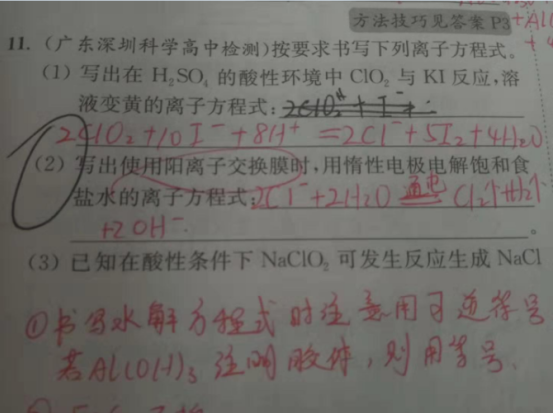 方法技巧见答案 P3
11. (广东深圳科学高中检测)按要求书写下列离子方程式。
(1) 写出在 H₂SO₄ 的酸性环境中 ClO₂ 与 KI 反应,溶
液变黄的离子方程式:
2ClO₂+10I⁻+8H⁺=2Cl⁻+5I₂+4H₂O
(2) 写出使用阳离子交换膜时,用惰性电极电解饱和食
盐水的离子方程式:2Cl⁻+2H₂O 通电 Cl₂↑+H₂↑
+2OH⁻.
(3) 已知在酸性条件下 NaClO₂ 可发生反应生成 NaCl
①书写水解方程式时注意用可逆符号
若Al(OH)₃注明胶体,则用等号.